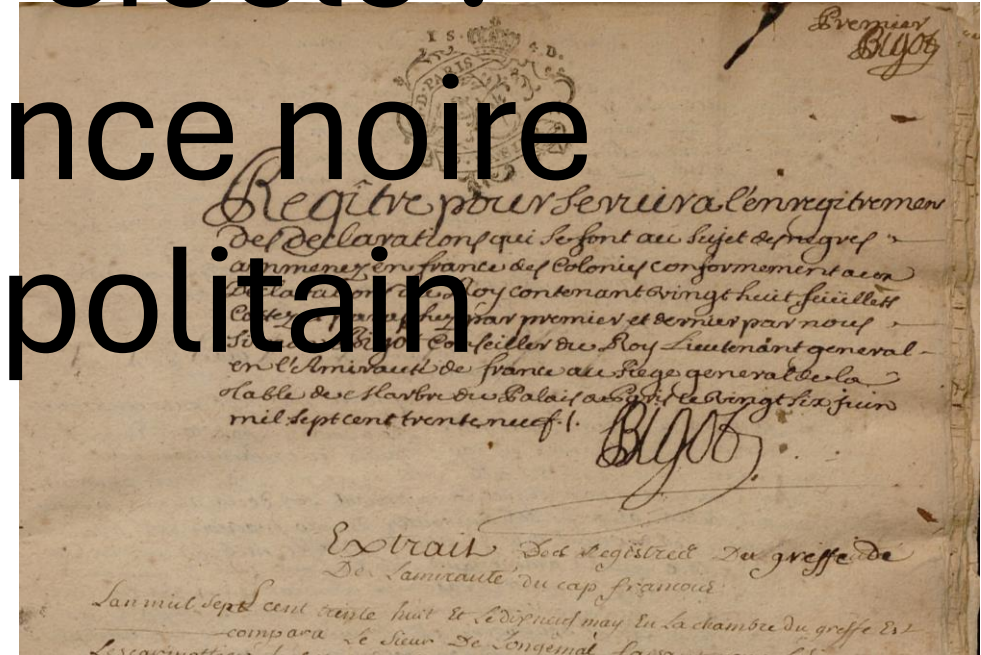 nce noire
politain
Premier
Bigot
I S. 4 D.
D. PARIS
Regître pour servir a l'enregitrement
des declarations qui se font au sujet des negres
ammenez en france des Colonies conformement aux
Declarations du Roy contenant vingt huit feüillets
Cottez et paraphez par premier et dernier par nous
Bigot Conseiller du Roy Lieutenant general
en l'Amirauté de france au siege general de la
Table de Marbre du Palais a Paris le vingt six juin
mil sept cent trente neuf ./.
Bigot
Extrait Des Registres Du greffe de
De Lamirauté du cap françois
Lan mil sept cent trente huit Et le dix neuf may En la chambre du greffe Est
comparu Le Sieur De Longemal